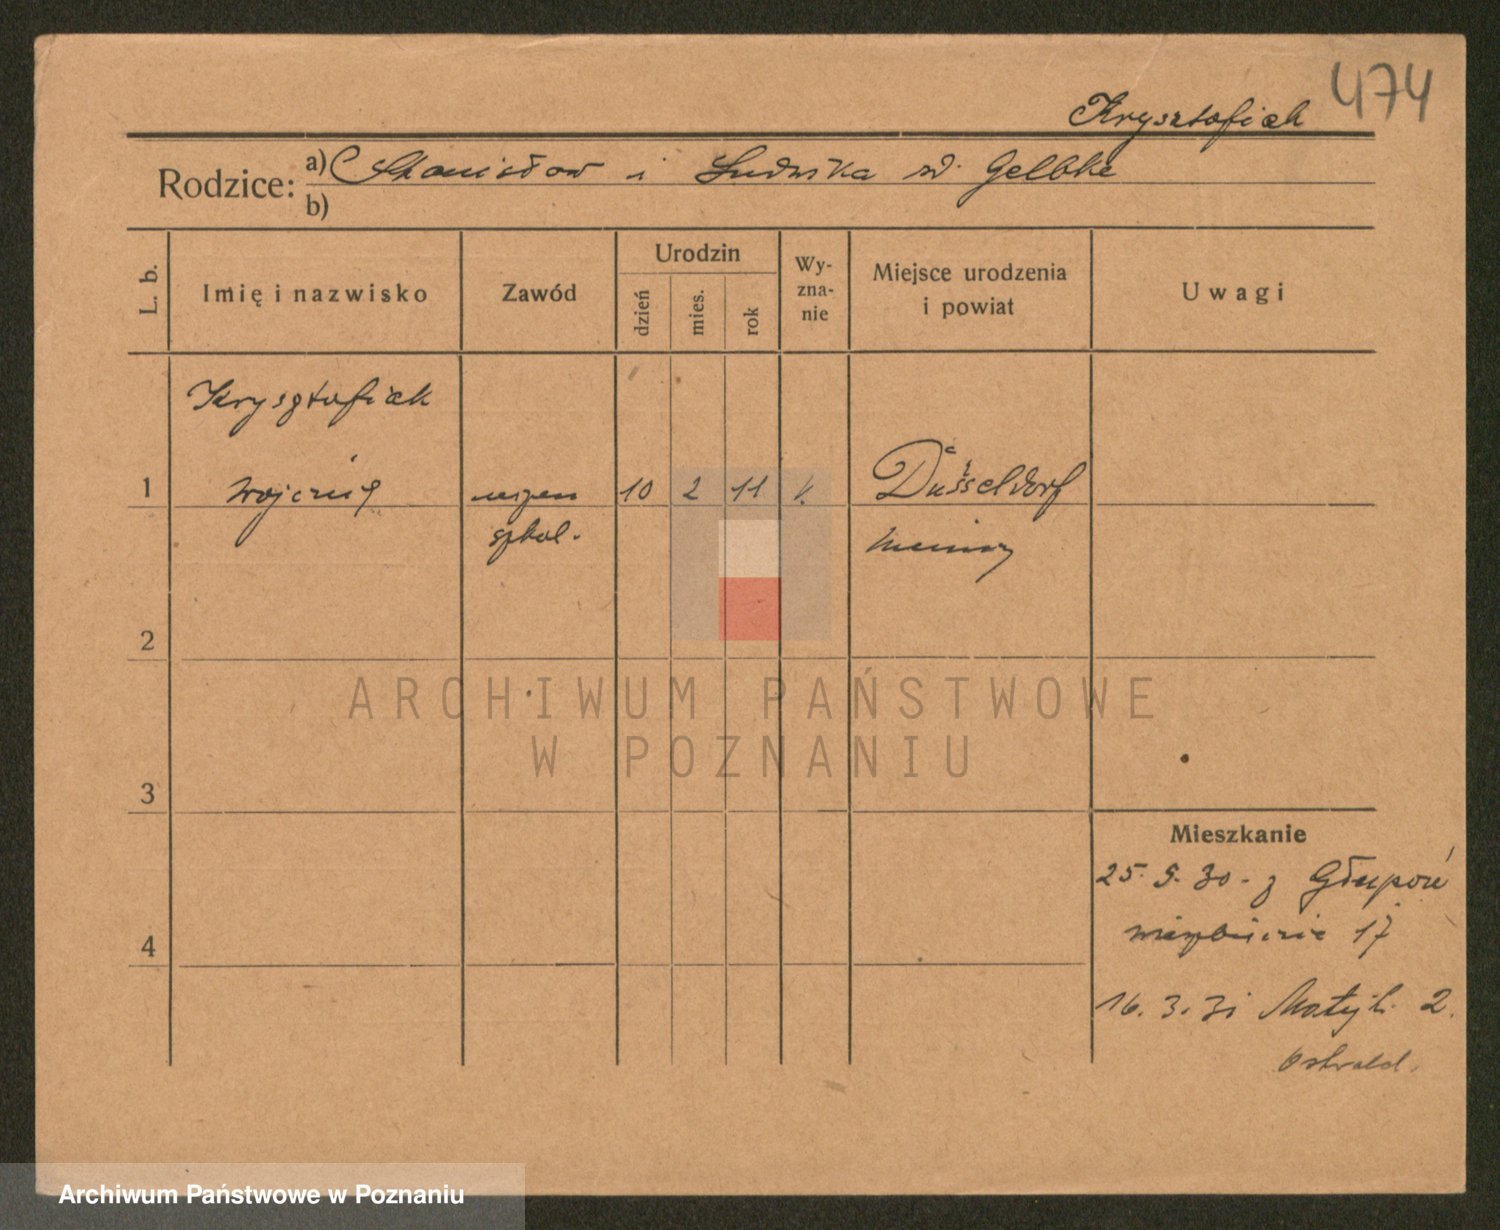 474
Krysztofiak
Rodzice: a) Stanisław i Ludwika zd. Gelbke
b)
L. b.
Imię i nazwisko
Zawód
Urodzin
dzień
mies.
rok
Wy-
zna-
nie
Miejsce urodzenia
i powiat
Uwagi
Krysztofiak
1 Wojciech 10 2 11 k. Düsseldorf
szkol. Niemcy
2
3
4
Mieszkanie
25. 9. 30 - z Głuponie
17
16. 3. 31 Matejki 2.
ARCHIWUM PAŃSTWOWE
W POZNANIU
Archiwum Państwowe w Poznaniu